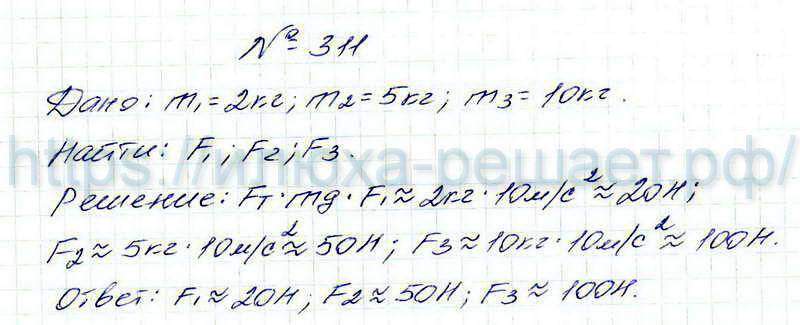 № 311
Дано: m₁ = 2кг; m₂ = 5кг; m₃ = 10кг.
Найти: F₁; F₂; F₃.
https://илюха-решает.рф/
Решение: Fт · mg · F₁ ≈ 2кг · 10м/с² ≈ 20Н;
F₂ ≈ 5кг · 10м/с² ≈ 50Н; F₃ ≈ 10кг · 10м/с² ≈ 100Н.
Ответ: F₁ ≈ 20Н; F₂ ≈ 50Н; F₃ ≈ 100Н.